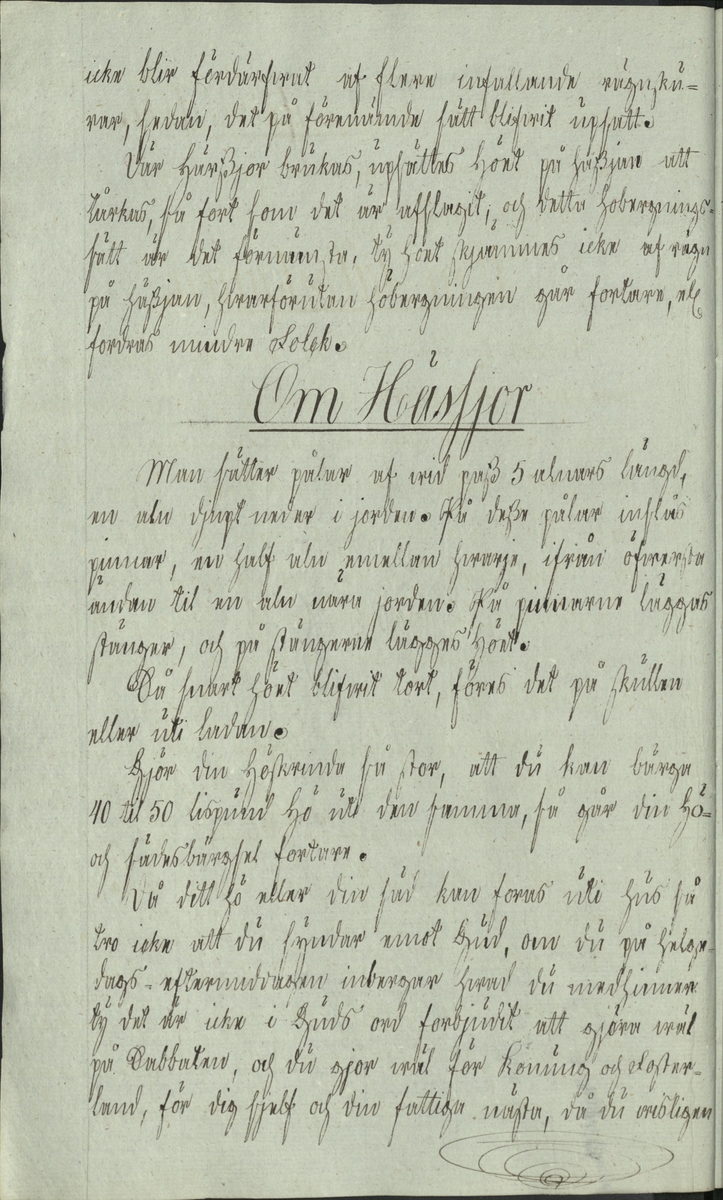 icke blir fördärfvat af flere infallande rägnsku=
rar, sedan, det på förenämde sätt blifvit upsatt.
Där Hässjor brukas, upsättes Höet på häßjan att
tårkas, så fort som det är afslagit, och detta höbergnings-
sätt är det förnämsta, ty höet skjämmes icke af rägn
på häßjan, hvarförutan höbergningen går fortare, och
fordras mindre Folck.
Om Hässjor
Man sätter pålar af vid paß 5 alnars längd,
en aln djupt neder i jorden. På deße pålar inslås
pinnar, en half aln emellan hvarje, ifrån öfversta
ändan til en aln nära jorden. På pinnarne läggas
stänger, och på stängerne lägges Höet.
Så snart höet blifvit tort, föres det på skullen
eller uti ladan.
Gjör din Höskrinda så stor, att du kan bärga
40 til 50 lispund Hö uti den samma, så går din Hö=
och sädesbärgsel fortare.
Då ditt hö eller din säd kan foras uti hus så
tro icke att du syndar emot Gud, om du på helge-
dags-eftermiddagen inbergar hvad du medhinner
ty det är icke i Guds ord forbjudit att gjöra väl
på Sabbaten, och du gjor väl för Konung och Foster-
land, för dig sjelf och din fattiga nästa, då du visligen